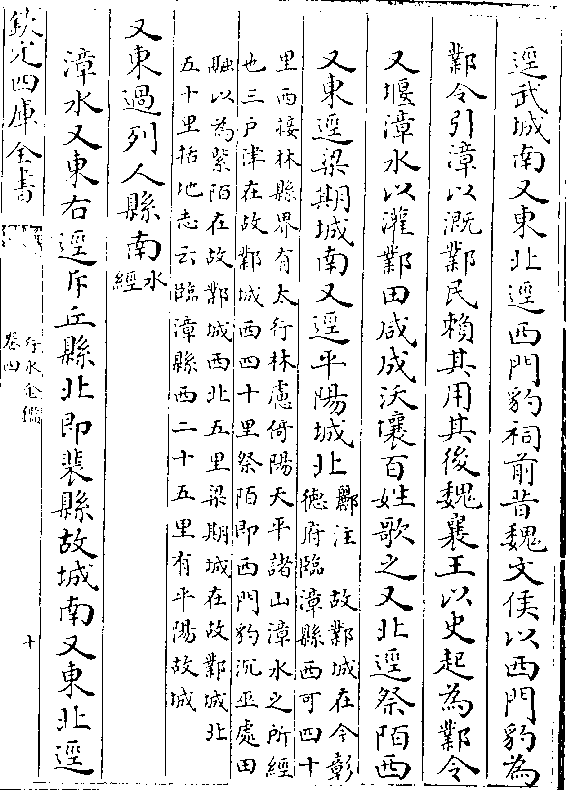 逕武城南又東北逕西門豹祠前昔魏文侯以西門豹為
鄴令引漳以溉鄴民賴其用其後魏襄王以史起為鄴令
又堰漳水以灌鄴田咸成沃壤百姓歌之又北逕祭陌西
又東逕梁期城南又逕平陽城北酈注 故鄴城在今彰
德府臨漳縣西可四十
里西接林縣界有太行林慮倚陽天平諸山漳水之所經
也三戶津在故鄴城西四十里祭陌即西門豹沉巫處田
融以為紫陌在故鄴城西北五里梁期城在故鄴城北
五十里括地志云臨漳縣西二十五里有平陽故城
又東過列人縣南水
經
漳水又東右逕斥丘縣北即裴縣故城南又東北逕
欽定四庫全書
行水金鑑
卷四
十